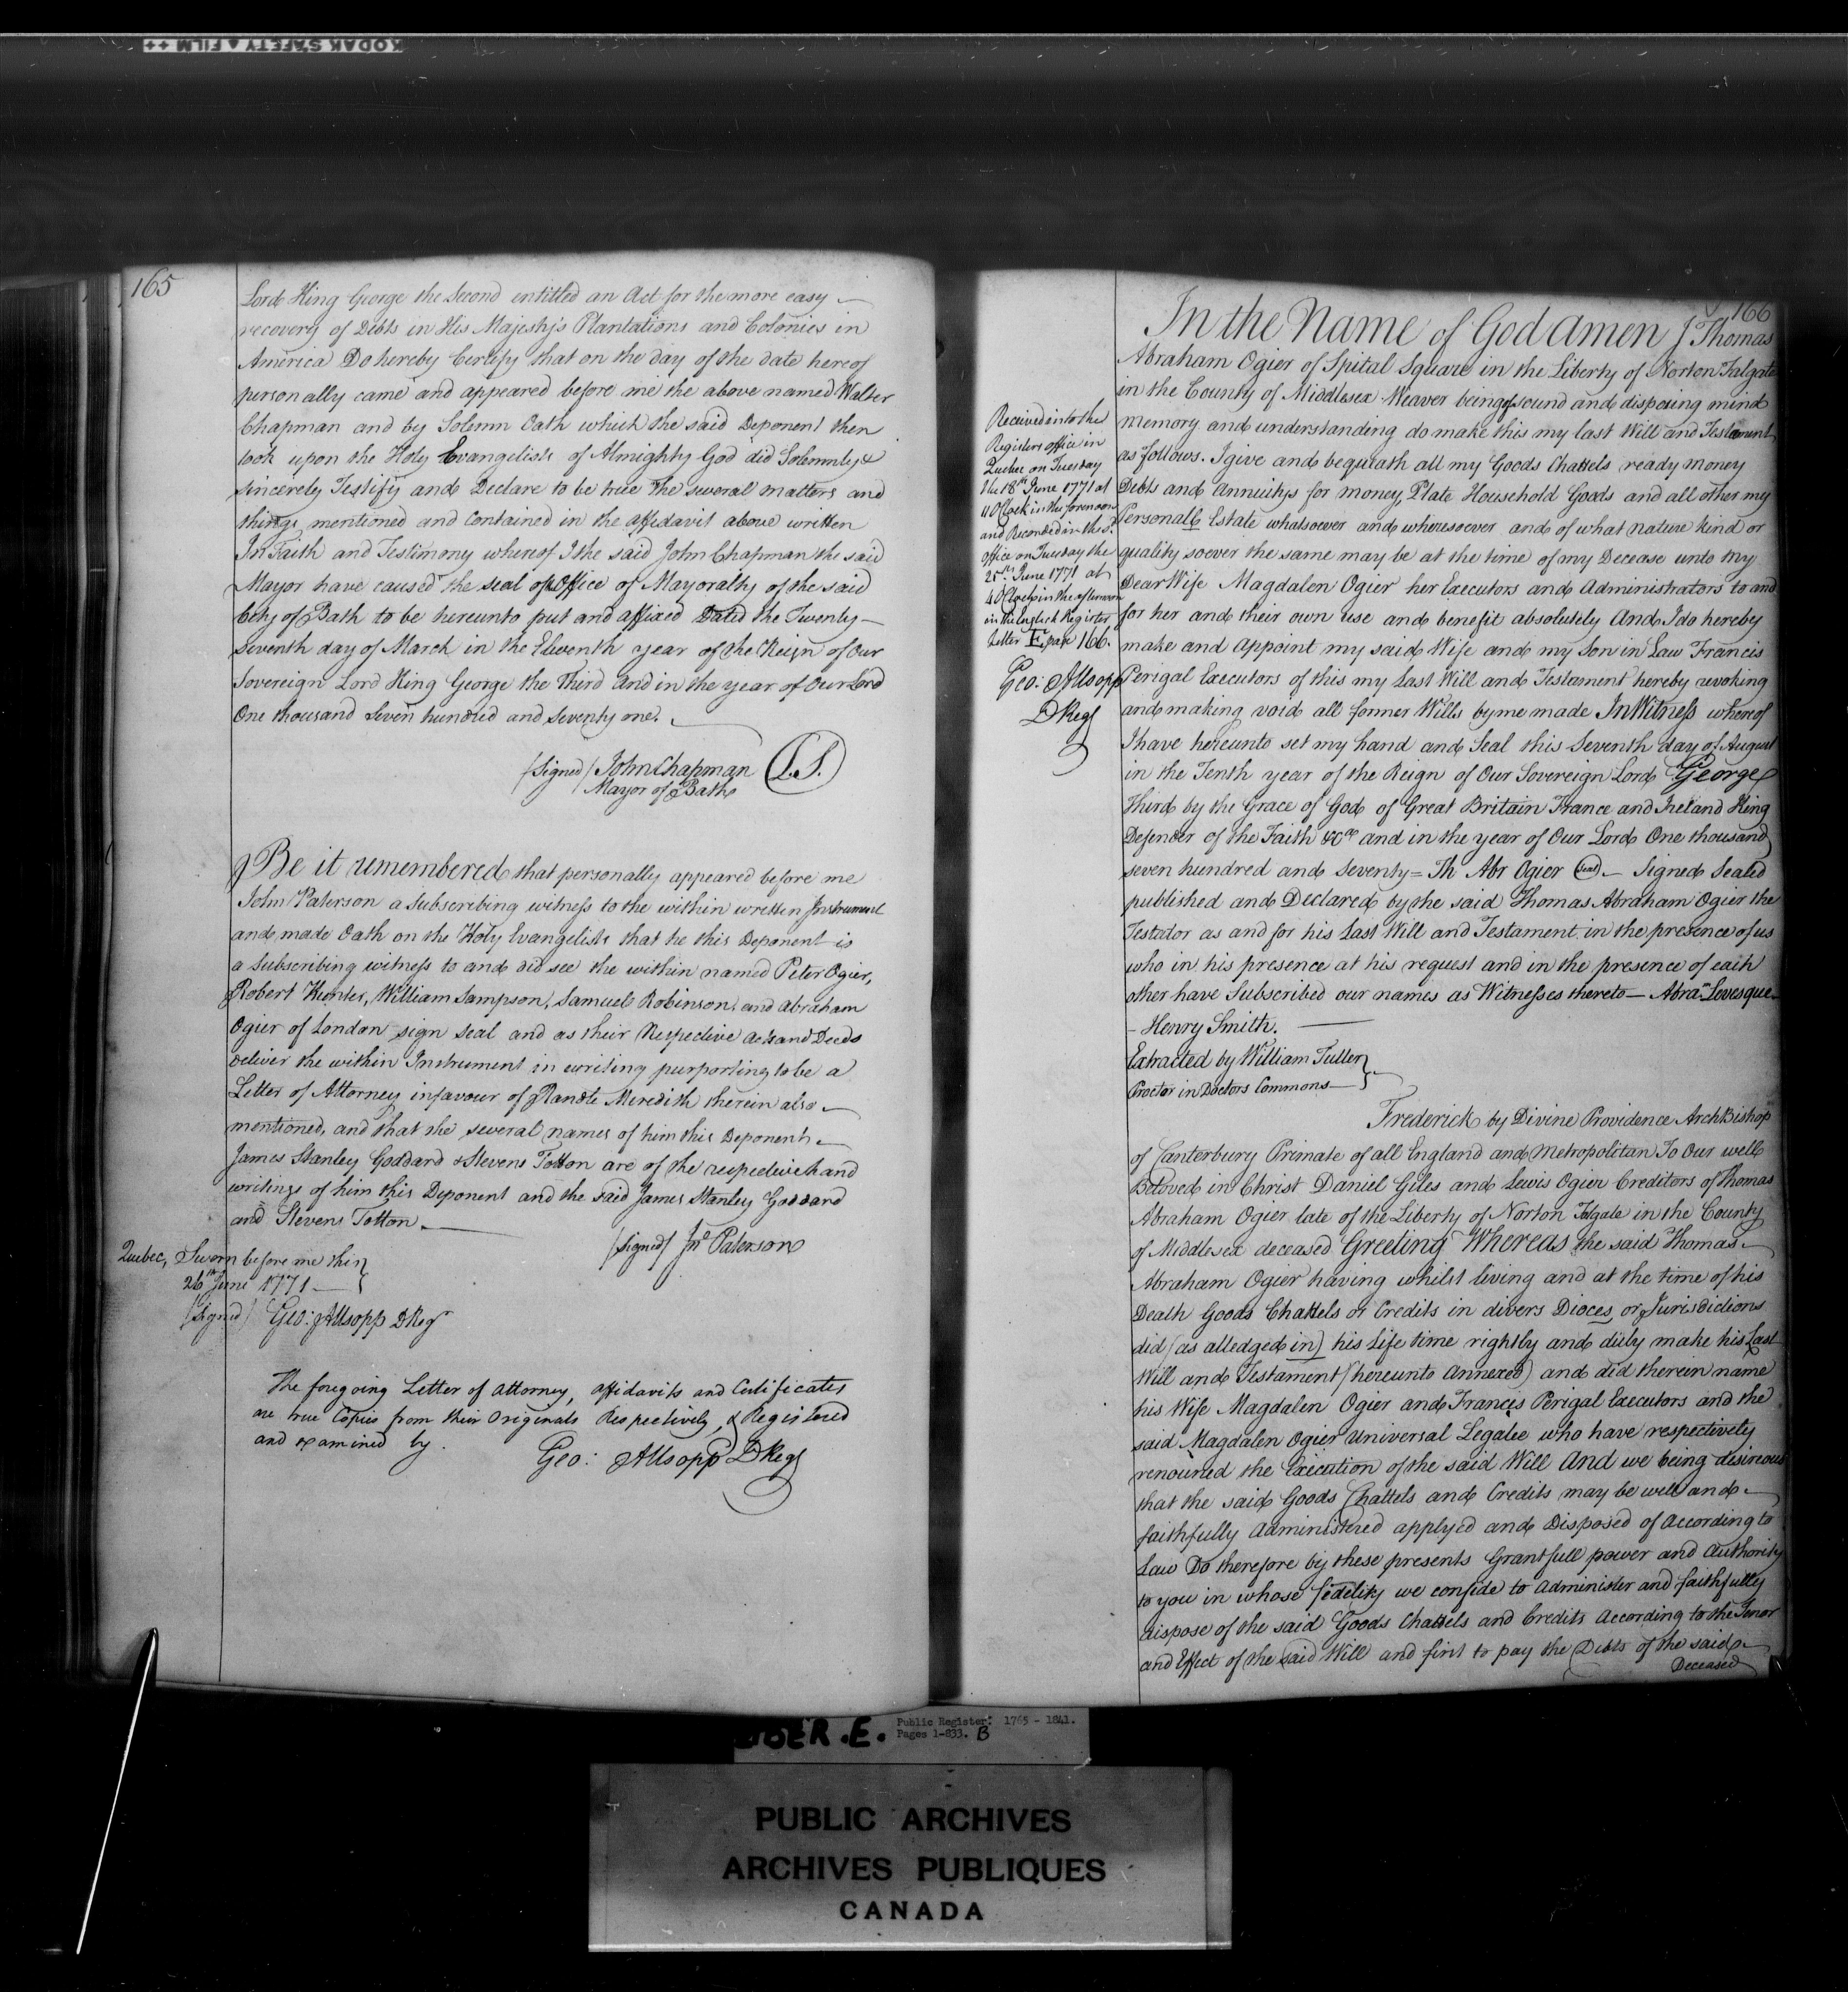 KODAK SAFETY FILM ++
165
Lord King George the Second entitled an Act for the more easy
recovery of Debts in His Majesty's Plantations and Colonies in
America Do hereby Certify that on the day of the date hereof
personally came and appeared before me the above named Walter
Chapman and by Solemn Oath which the said Deponent then
took upon the Holy Evangelists of Almighty God did Solemnly &
sincerely Testify and Declare to be true the several matters and
things mentioned and Contained in the affidavit above written
In Faith and Testimony whereof I the said John Chapman the said
Mayor have caused the seal of Office of Mayoralty of the said
City of Bath to be hereunto put and affixed Dated the Twenty
seventh day of March in the Eleventh year of the Reign of Our
Sovereign Lord King George the Third and in the year of Our Lord
One thousand Seven hundred and seventy one.
(Signed) John Chapman L.S.
Mayor of Bath
Be it remembered that personally appeared before me
John Paterson a Subscribing witness to the within written Instrument
and made Oath on the Holy Evangelists that he this Deponent is
a Subscribing witness to and did see the within named Peter Ogier,
Robert Hunter, William Sampson, Samuel Robinson, and Abraham
Ogier of London sign seal and as their Respective acts and Deeds
deliver the within Instrument in writing purporting to be a
Letter of Attorney in favour of Randle Meredith therein also
mentioned, and that the several names of him this Deponent
James Stanley Goddard & Stevens Totton are of the respective hand
writings of him this Deponent and the said James Stanley Goddard
and Stevens Totton.
(signed) Jno Paterson
Quebec, Sworn before me this
26th June 1771
(Signed) Geo: Allsopp DReg
The foregoing Letter of Attorney, affidavits and Certificates
are true Copies from their Originals Respectively, & Registered
and examined by.
Geo: Allsopp DReg
166
In the Name of God Amen I Thomas
Abraham Ogier of Spital Square in the Liberty of Norton Falgate
in the County of Middlesex Weaver being of sound and disposing mind
memory and understanding do make this my last Will and Testament
as follows. I give and bequeath all my Goods Chattels ready money
Debts and Annuitys for money, Plate Household Goods and all other my
Personall Estate whatsoever and wheresoever and of what nature kind or
quality soever the same may be at the time of my Decease unto my
Dear Wife Magdalen Ogier her Executors and Administrators to and
for her and their own use and benefit absolutely And I do hereby
make and appoint my said Wife and my Son in Law Francis
Perigal Executors of this my Last Will and Testament hereby revoking
and making void all former Wills by me made In Witness whereof
I have hereunto set my hand and Seal this Seventh day of August
in the Tenth year of the Reign of Our Sovereign Lord George
Third by the Grace of God of Great Britain France and Ireland King
Defender of the Faith &ca and in the year of Our Lord One thousand
seven hundred and Seventy = Th Abr Ogier Seal Signed Sealed
published and Declared by the said Thomas Abraham Ogier the
Testator as and for his Last Will and Testament in the presence of us
who in his presence at his request and in the presence of each
other have Subscribed our names as Witnesses thereto — Abram Levesque
- Henry Smith.
Extracted by William Fuller
Proctor in Doctors Commons
Received into the
Registers office in
Quebec on Tuesday
the 18th June 1771 at
O Clock in the forenoon
and Recorded in the sd
office on Tuesday the
25th June 1771 at
4 O Clock in the afternoon
in the English Register
Letter E. page 166.
Geo: Allsopp
DReg
Frederick by Divine Providence ArchBishop
of Canterbury Primate of all England and Metropolitan To Our well
Beloved in Christ Daniel Giles and Lewis Ogier Creditors of Thomas
Abraham Ogier late of the Liberty of Norton Falgate in the County
of Middlesex deceased Greeting Whereas the said Thomas
Abraham Ogier having whilst living and at the time of his
Death Goods Chattels or Credits in divers Dioces or Jurisdictions
did (as alledged in) his Life time rightly and duly make his Last
Will and Testament (hereunto Annexed) and did therein name
his Wife Magdalen Ogier and Francis Perigal Executors and the
said Magdalen Ogier Universal Legatee who have respectively
renounced the Execution of the said Will And we being desireous
that the said Goods Chattels and Credits may be well and
faithfully Administered applyed and Disposed of According to
Law Do therefore by these presents Grant full power and Authority
to you in whose fidelity we confide to Administer and faithfully
dispose of the said Goods Chattels and Credits According to the Tenor
and Effect of the said Will and first to pay the Debts of the said
Deceased
LIBER .E.
Public Register: 1765 - 1841.
Pages 1-833. B
PUBLIC ARCHIVES
ARCHIVES PUBLIQUES
CANADA